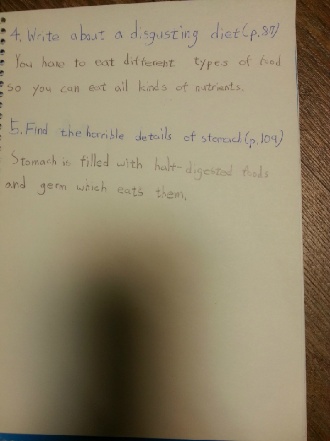 4. Write about a disgusting diet(p.87)
You have to eat different types of food
so you can eat all kinds of nutrients.
5. Find the horrible details of stomach(p.109)
Stomach is filled with half-digested foods
and germ which eats them.